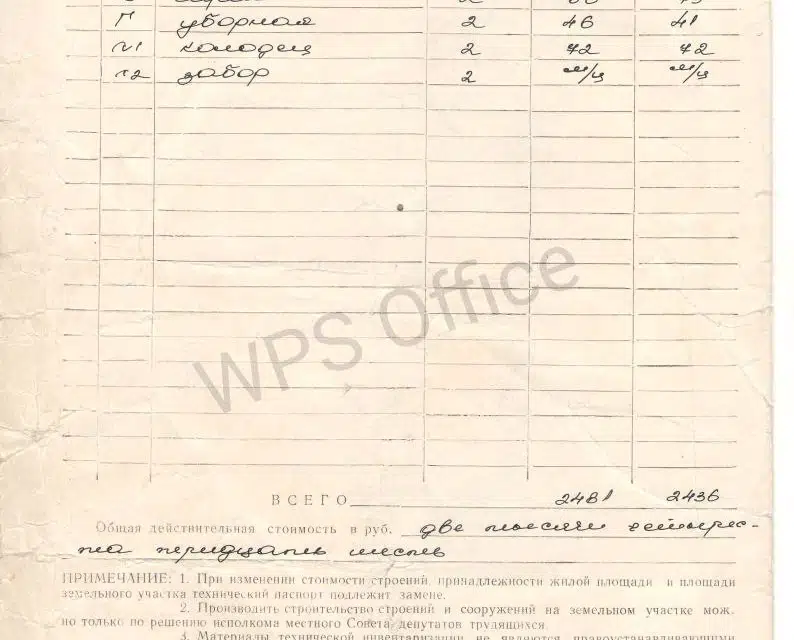 Г уборная 2 46 41
Г1 колодец 2 72 72
Г2 забор 2 м/ц м/ц
WPS Office
ВСЕГО 2481 2436
Общая действительная стоимость в руб. две тысячи четырес-
та тридцать шесть
ПРИМЕЧАНИЕ: 1. При изменении стоимости строений, принадлежности жилой площади и площади
земельного участка технический паспорт подлежит замене.
2. Производить строительство строений и сооружений на земельном участке мож.
но только по решению исполкома местного Совета депутатов трудящихся.
3. Материалы технической инвентаризации не являются правоустанавливающими